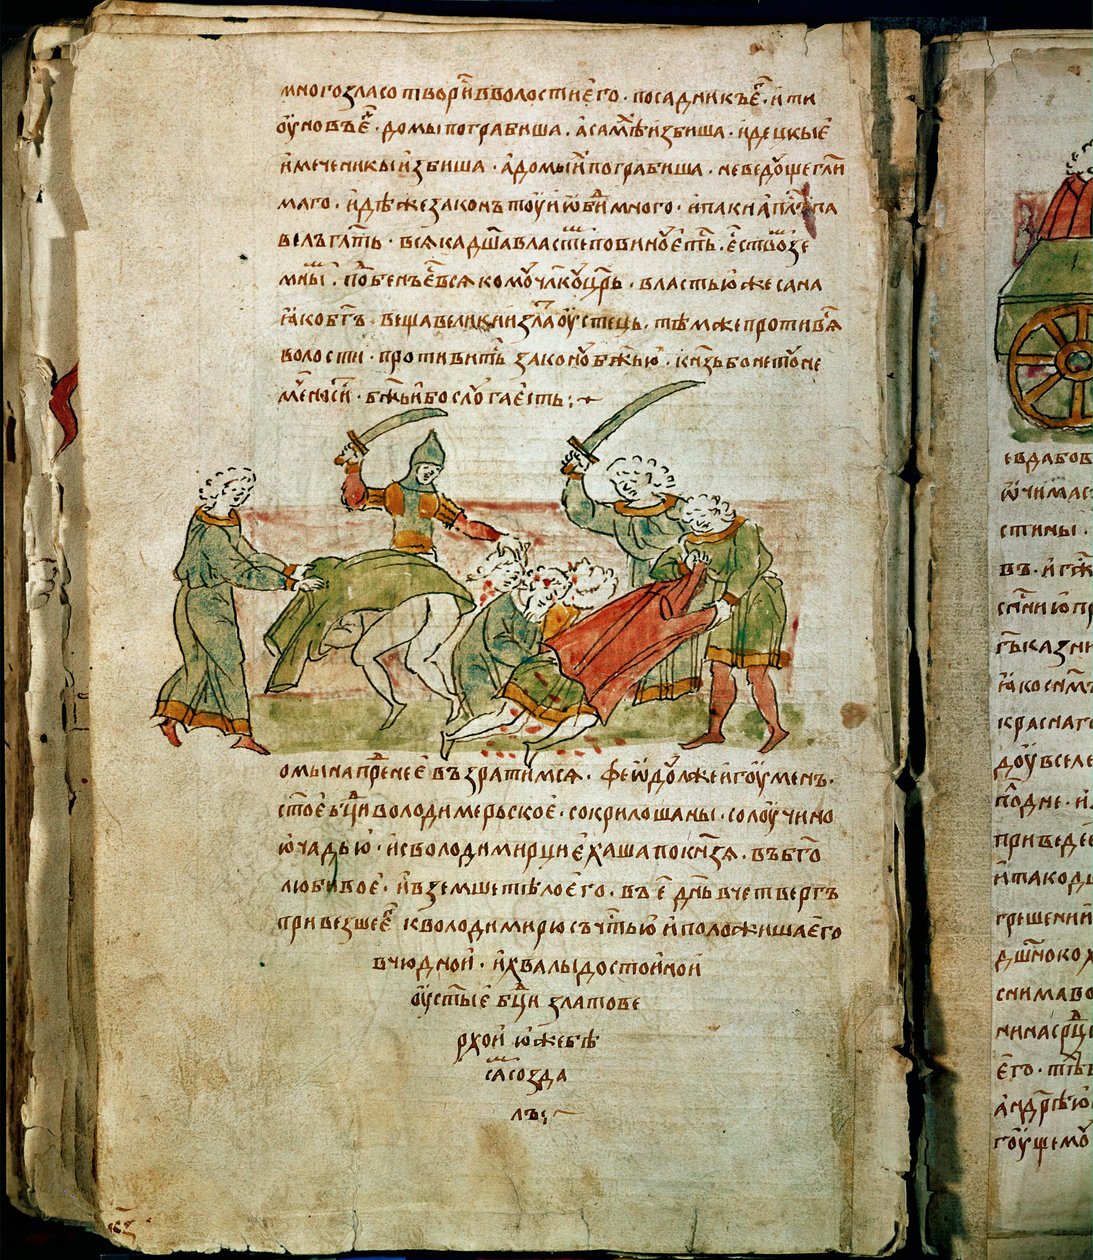 многозласотвори҃ в волости его · посадникъ е҃ · и ти
оуновъ е҃ · домы пограбиша · а самѣ҃ избиша · и децкыѣ
и меченикы избиша · а домы и҃ пограбиша · не ведоуще гл҃и
маго · идѣже законъ тоу и ѡби҃ много · и паки ап҃лъ па
велъ гл҃ть · всѧка дш҃а властем повиноуе҃ть · ест҃во бо зе
мны · по҃бенъ е҃ всѧкомоу чл҃коу цр҃ь · властью же сана
ꙗко бг҃ъ · веща великии зла҃оустець · тѣмже противѧ
волости · противить҃ законоу бж҃ью · кн҃зь бо не тоуне
ме҃ носи · бж҃ьи бо слоуга есть :~
ѡ мы на пре҃нее възратимсѧ · феѡдоулже игоумен ·
ст҃ое бц҃и володимерьское · со крилошаны · со лоучино
ю чадью · и с володимирци ѣхаша по кн҃зѧ · въ бг҃о
любивое · и вземше тѣло его · въ е҃ дн҃ь в четвергъ
привезше е҃ к володимирю съ ч҃тью и положиша его
в чюдной · и хвалы достойной
оу ст҃ые бц҃и златове
рхой юже бѣ
са҃ созда
лъ :~
евдабов
ѡчимас
стины ·
въ · и г҃ж
гъ казни
ꙗко симъ
краснаго
доу вселе
по҃дне · и
приведе
и тако дь
грешений
дш҃ноко
снимаво
мина срц҃
его · тѣ
андрѣю
гоущемоу